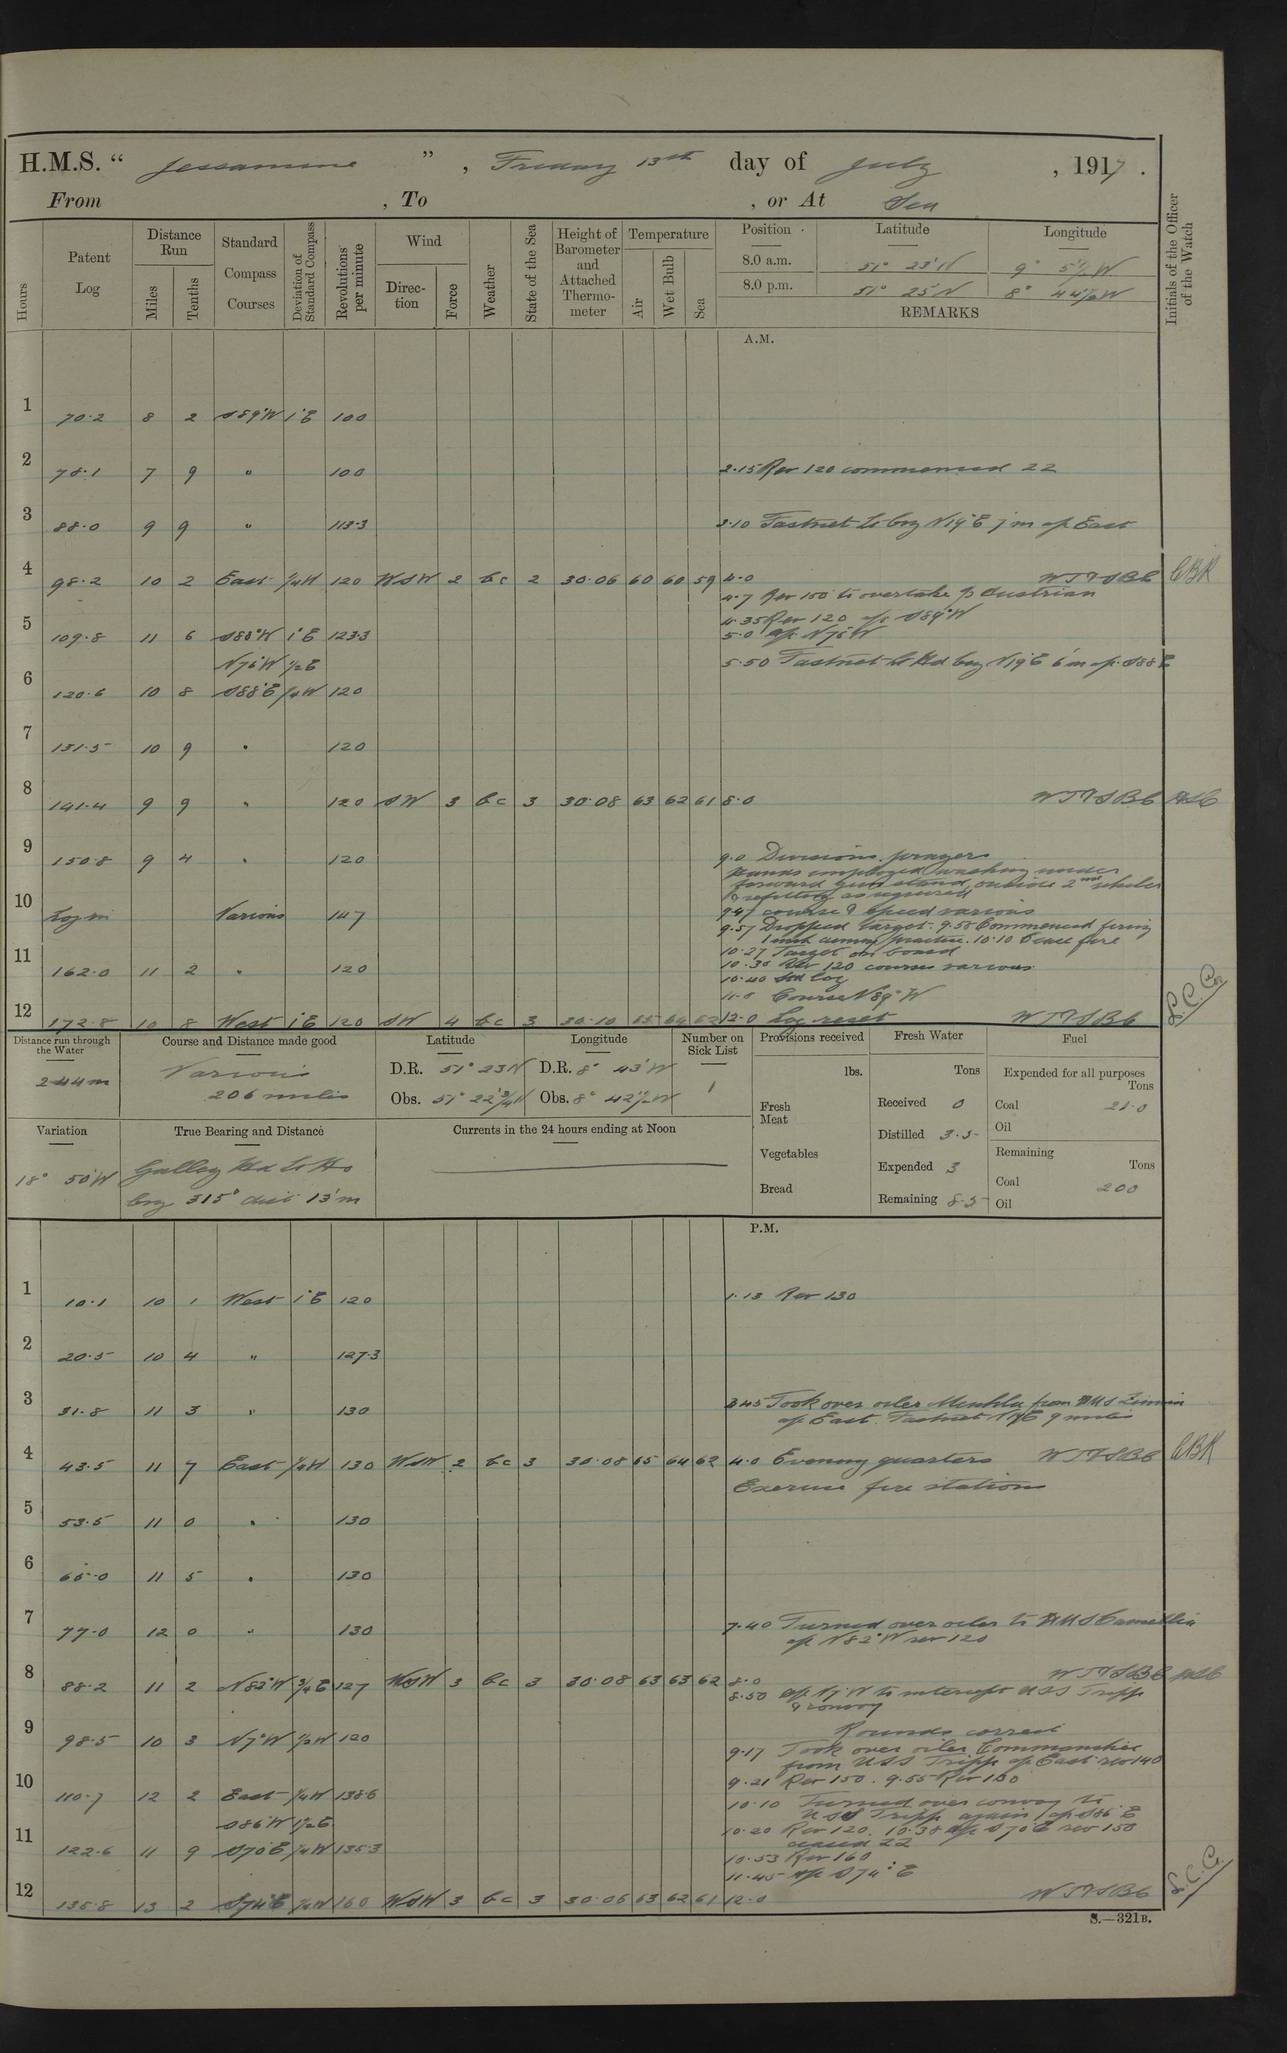 H.M.S. " Jessamine ", Friday 13th day of July, 1917.
From , To , or At Sea
Hours
Patent Log
Distance Run
Miles
Tenths
Standard Compass Courses
Deviation of Standard Compass
Revolutions per minute
Wind
Direction
Force
Weather
State of the Sea
Height of Barometer and Attached Thermometer
Temperature
Air
Wet Bulb
Sea
Position
Latitude
Longitude
8.0 a.m. 51° 23' N 9° 5½' W
8.0 p.m. 51° 25' N 8° 44½' W
REMARKS
Initials of the Officer of the Watch
A.M.
1 70.2 8 2 S89°W 1°E 100
2 78.1 7 9 " 100 2.15 Rev 120 commenced 22
3 88.0 9 9 " 113.3 3.10 Fastnet Lt brg N19°E 7m a/c East
4 98.2 10 2 East ¼W 120 WSW 2 bc 2 30.06 60 60 59 4.0 CBR
4.7 Rev 150 to overtake Austrian
4.35 Rev 120 a/c S89°W
5 109.8 11 6 S88°W 1°E 123.3 5.0 a/c N76°W
N76°W ½E 5.50 Fastnet Lt Hd brg N19°E 6'm a/c S88E
6 120.6 10 8 S88°E ¼W 120
7 131.5 10 9 " 120
8 141.4 9 9 " 120 SW 3 bc 3 30.08 63 62 61 8.0
9 150.8 9 4 " 120 9.0 Divisions. prayers
Hands employed washing under
forward gun stand, outside 2nd whaler
& refitting as required
10 Log in Various 147 9.47 course & speed various
9.57 Dropped target. 9.58 Commenced firing
1 inch aiming practice. 10.10 Cease fire
10.27 Target on board
11 162.0 11 2 " 120 10.30 Rev 120 courses various
10.40 Std log
11.0 Course N89°W
12 172.8 10 8 West 1°E 120 SW 4 bc 3 30.10 65 64 62 12.0 Log reset L.C.C.
Distance run through the Water
244m
Course and Distance made good
Various
206 miles
Latitude
D.R. 51° 23N
Obs. 51° 22¾'N
Longitude
D.R. 8° 43'W
Obs. 8° 42½W
Number on Sick List
1
Provisions received
lbs.
Fresh Meat
Vegetables
Bread
Fresh Water
Tons
Received 0
Distilled 3.5
Expended 3
Remaining 8.5
Fuel
Expended for all purposes
Tons
Coal 21.0
Oil
Remaining
Tons
Coal 200
Oil
Variation
18° 50'W
True Bearing and Distance
Galley Hd Lt Ho
brg 315° dist 13'm
Currents in the 24 hours ending at Noon
P.M.
1 10.1 10 1 West 1°E 120 1.13 Rev 130
2 20.5 10 4 " 127.3
3 31.8 11 3 " 130 3.45 Took over oiler from HMS Zinnia
a/c East. Fastnet 9 miles
4 43.5 11 7 East ¼W 130 WSW 2 bc 3 30.08 65 64 62 4.0 Evening quarters CBR
Exercise fire stations
5 53.5 11 0 " 130
6 65.0 11 5 " 130
7 77.0 12 0 " 130 7.40 Turned over oiler to HMS Camellia
a/c N82°W rev 120
8 88.2 11 2 N82°W ¾E 127 WSW 3 bc 3 30.08 63 63 62 8.0
8.50 a/c N7°W to intercept USS Tripp
& convoy
Rounds correct
9 98.5 10 3 N7°W ½W 120 9.17 Took over oiler
from USS Tripp a/c East rev 140
9.21 Rev 150. 9.55 Rev 130
10 110.7 12 2 East ¼W 138.6 10.10 Turned over convoy to
S86°W 1½E USS Tripp again a/c S86°E
10.20 Rev 120. 10.38 a/c S70°E rev 150
11 122.6 11 9 S70°E ¼W 135.3 ceased 22
10.53 Rev 160
11.45 a/c S74°E
12 135.8 13 2 S74°E ¼W 160 WSW 3 bc 3 30.06 63 62 61 12.0 L.C.C.
S.—321B.